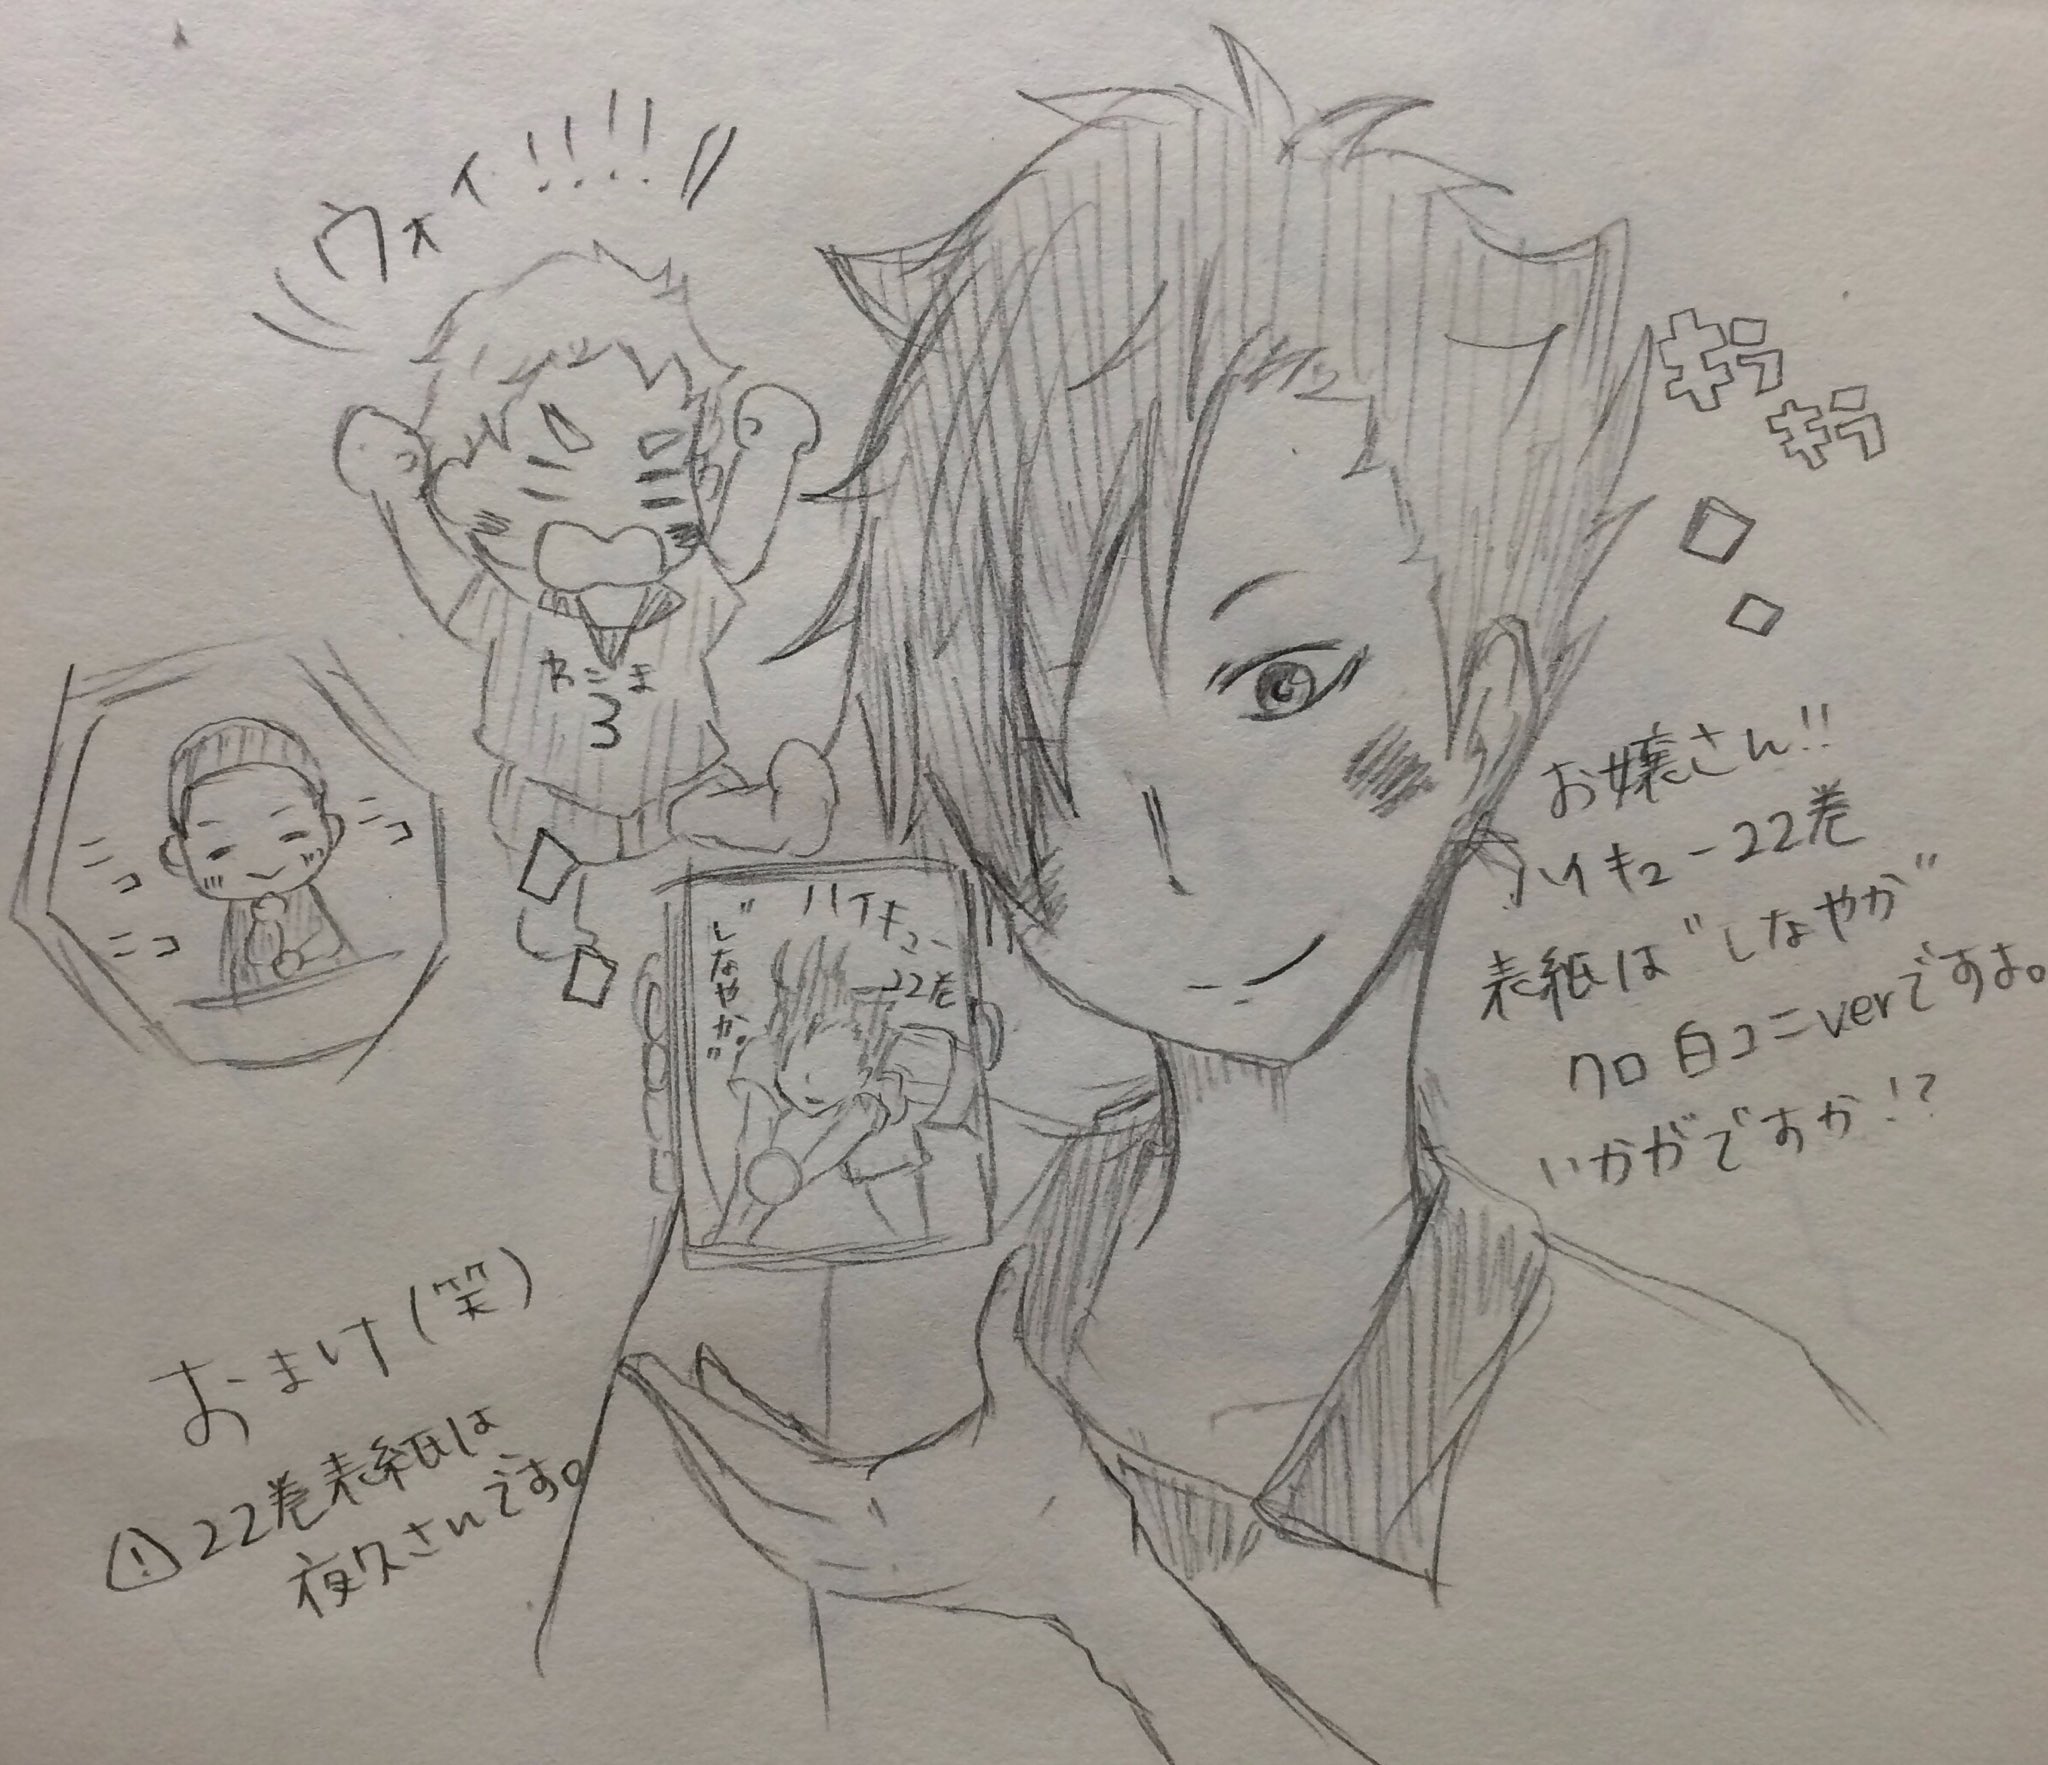 ウォイ!!!!
ギラ
ギラ
お嬢さん!!
ハイキュー22巻
表紙は"しなやか"
クロ 白コニverですよ。
いかがですか!?
ねこま
3
ニコ
ニコ
ニコ
ハイキュー
22巻
"しなやか。"
おまけ(笑)
! 22巻表紙は
夜久さんです。